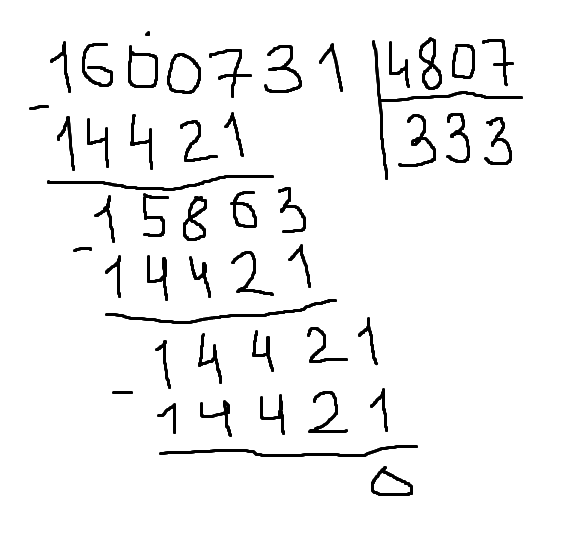 1600731 4807
- 14421 333
15863
- 14421
14421
- 14421
0